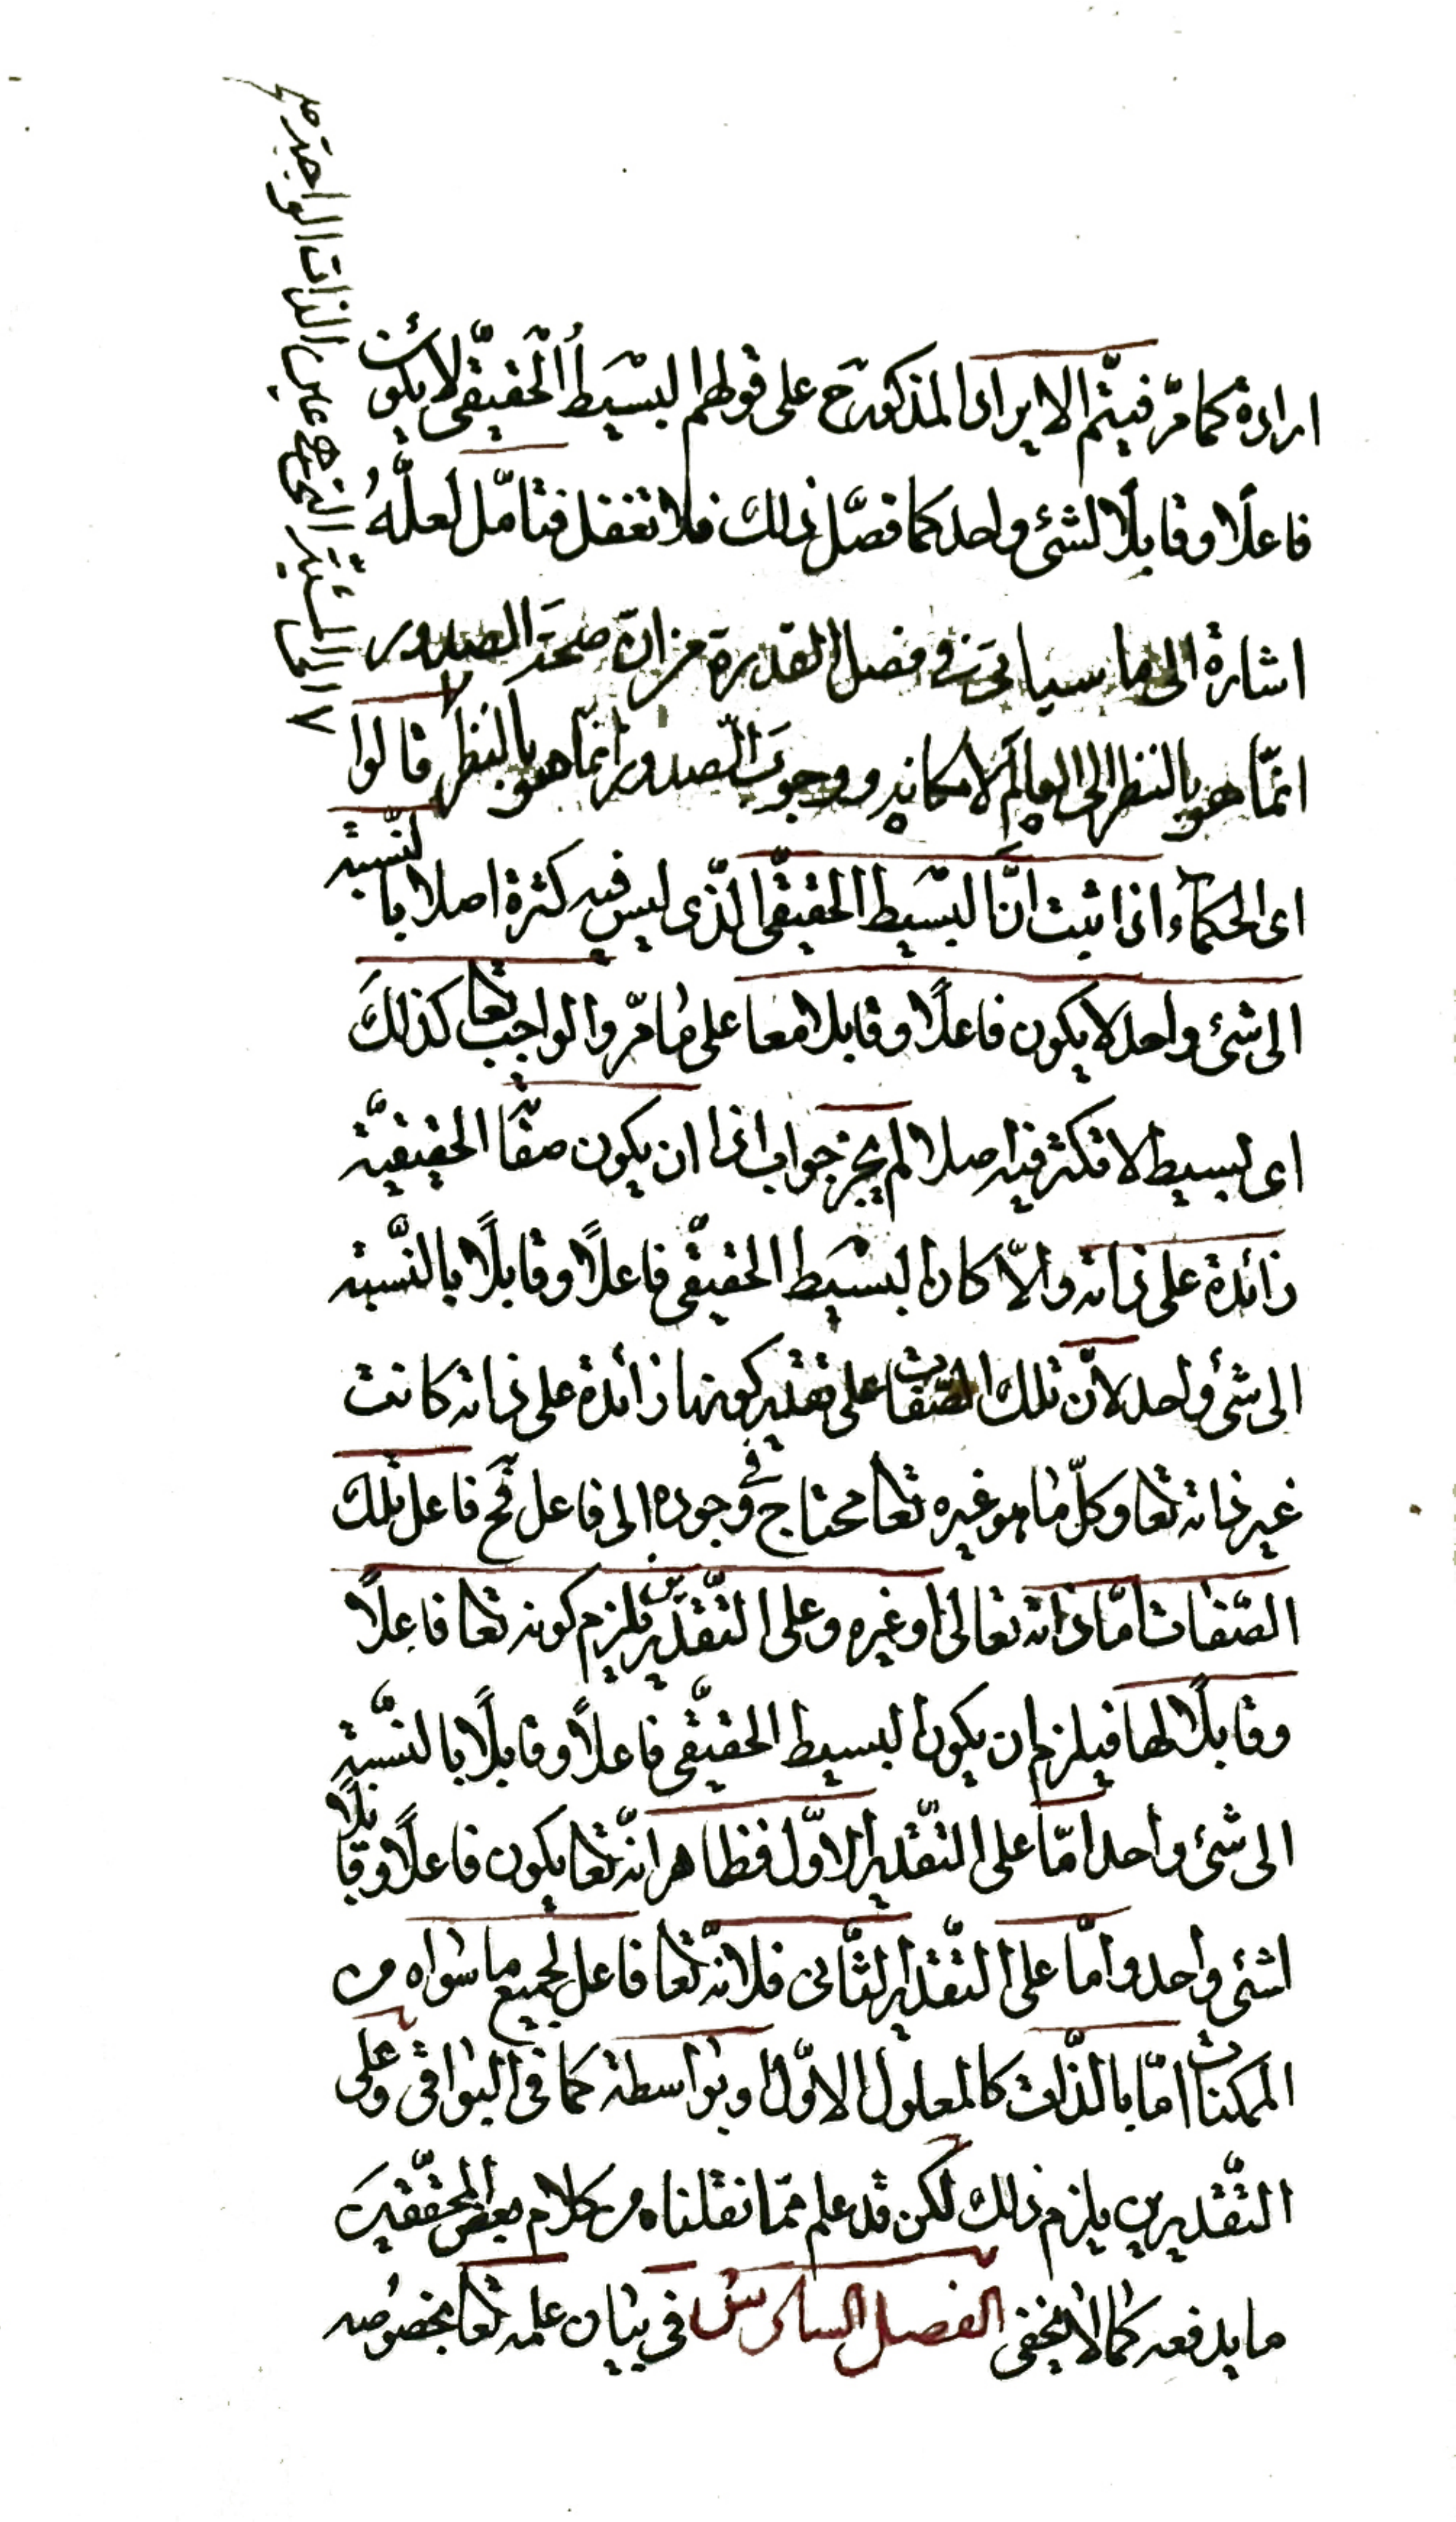 ارادة كما مرّ فيتمّ الايراد المذكور ح على قولهم البسيط الحقيقى لا يكون
فاعلًا و قابلًا لشئ واحد كما فصّل ذلك فلا تغفل فتامّل لعلّهُ
اشارة الى ما سياتى فى فصل القدرة من ان صحة الصدور
انّما هو بالنظر الى العالم لامكانه و وجوب الصدور انّما هو بالنظر قالوا
اى الحكماء اذا ثبت انّ البسيط الحقيقى الّذى ليس فيه كثرة اصلا بالنّسبة
الى شئ واحد لا يكون فاعلًا و قابلا معا على ما مرّ و الواجب تعا كذلك
اى بسيط لا تكثر فيه اصلا لم يجز جواب اذا ان يكون صفاته الحقيقيّة
زائدة على ذاته و الّا كان البسيط الحقيقى فاعلًا و قابلًا بالنّسبة
الى شئ واحد لانّ تلك الصّفات على تقدير كونها زائدة على ذاته كانت
غير ذاته تعا و كلّ ما هو غيره تعا محتاج فى وجوده الى فاعل فح فاعل تلك
الصّفات امّا ذاته تعالى او غيره و على التّقديرين يلزم كونه تعا فاعلًا
و قابلًا لها فيلزم ان يكون البسيط الحقيقى فاعلًا و قابلًا بالنّسبة
الى شئ واحد امّا على التّقدير الاوّل فظاهر انّه تعا يكون فاعلًا و قابلًا
لشئ واحد و امّا على التّقدير الثّانى فلانّه تعا فاعل لجميع ما سواه من
الممكنات امّا بالذّات كالمعلول الاوّل او بواسطة كما فى البواقى و على
التّقديرين يلزم ذلك لكن قد علم ممّا نقلناه من كلام بعض المحقّقين
ما يدفعه كما لا يخفى الفصل السادس فى بيان علمه تعا بخصوصه
عين الذات الواجبة